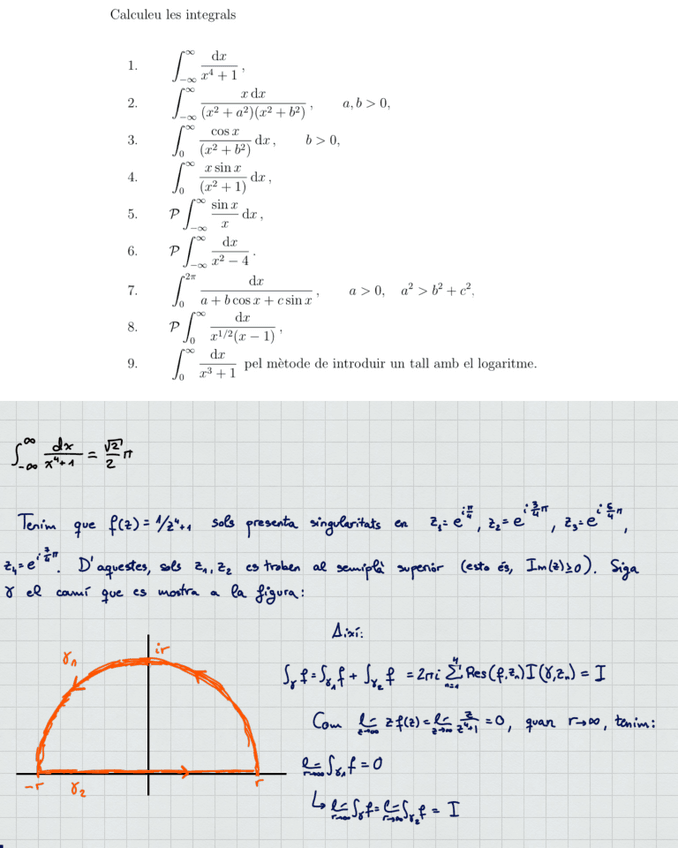 Calculeu les integrals
1. ∫_{-∞}^{∞} dx / (x⁴ + 1) ,
2. ∫_{-∞}^{∞} x dx / ((x² + a²)(x² + b²)) , a, b > 0,
3. ∫_{0}^{∞} cos x / (x² + b²) dx , b > 0,
4. ∫_{0}^{∞} x sin x / (x² + 1) dx ,
5. 𝒫 ∫_{-∞}^{∞} sin x / x dx ,
6. 𝒫 ∫_{-∞}^{∞} dx / (x² − 4) .
7. ∫_{0}^{2π} dx / (a + b cos x + c sin x) , a > 0, a² > b² + c²,
8. 𝒫 ∫_{0}^{∞} dx / (x^{1/2}(x − 1)) ,
9. ∫_{0}^{∞} dx / (x³ + 1) pel mètode de introduir un tall amb el logaritme.
∫_{-∞}^{∞} dx / (x⁴+1) = (√2 / 2) π
Tenim que f(z) = 1/z⁴+1 sols presenta singularitats en z₁ = e^{iπ/4}, z₂ = e^{i3/4π}, z₃ = e^{i5/4π},
D'aquestes, sols z₁, z₂ es troben al semiplà superior (esto és, Im(z) ≥ 0). Siga
γ el camí que es mostra a la figura:
Així:
γ₁ ir
∫_γ f = ∫_{γ₁} f + ∫_{γ₂} f = 2πi Σ_{n=1}^{4} Res(f, zₙ) I(γ, zₙ) = I
Com lim_{z→∞} z f(z) = lim_{z→∞} z / (z⁴+1) = 0, quan r→∞, tenim:
lim_{r→∞} ∫_{γ₁} f = 0
-r γ₂ r
↳ lim_{r→∞} ∫_γ f = lim_{r→∞} ∫_{γ₂} f = I